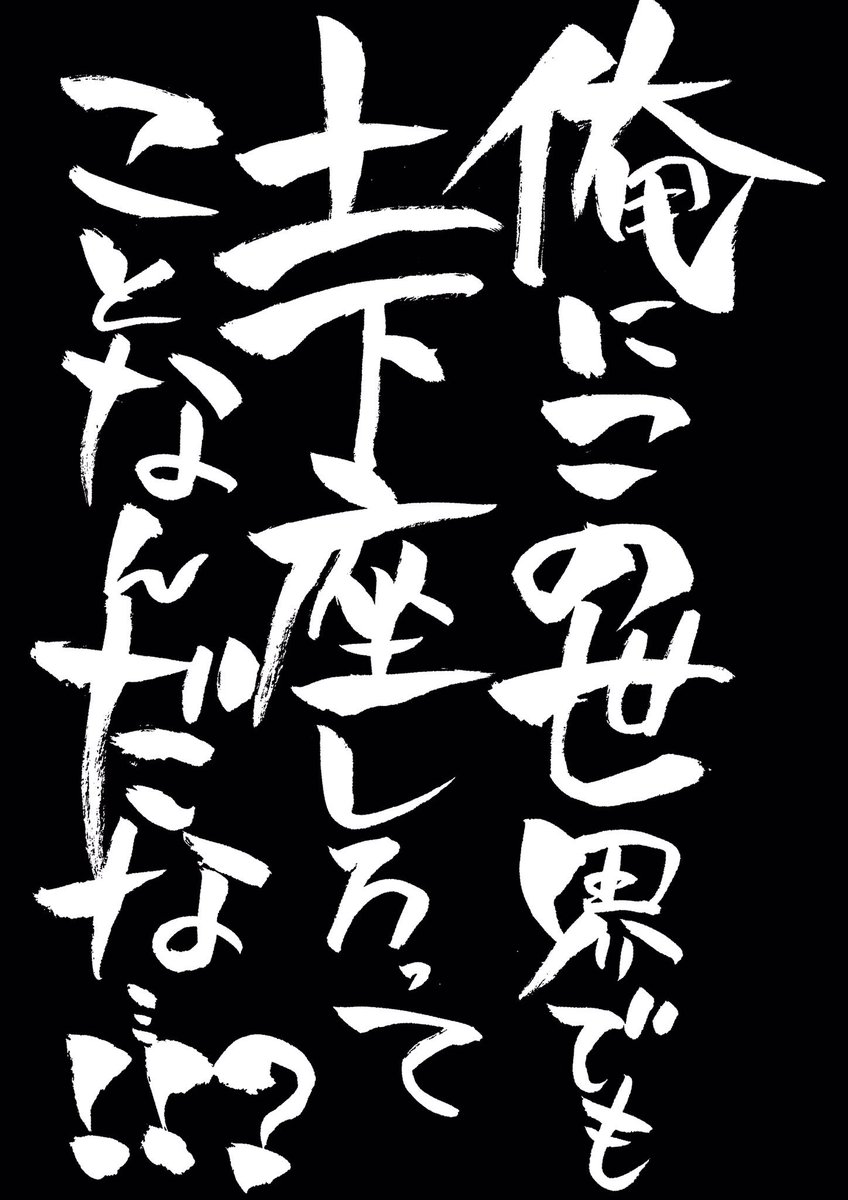 俺にこの世界でも
土下座しろって
ことなんだな…!!?